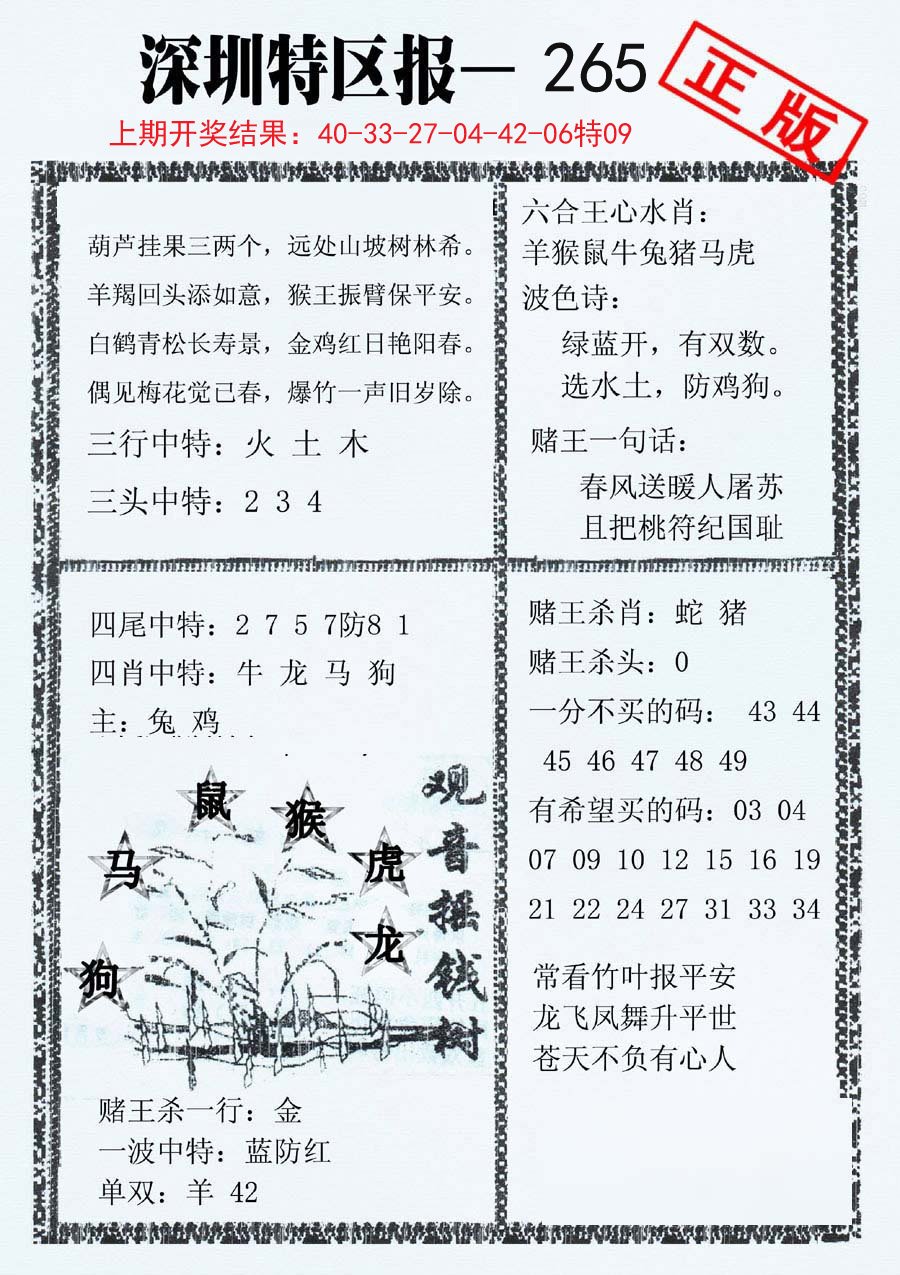 深圳特区报— 265
正版
上期开奖结果：40-33-27-04-42-06特09
葫芦挂果三两个，远处山坡树林希。
羊羯回头添如意，猴王振臂保平安。
白鹤青松长寿景，金鸡红日艳阳春。
偶见梅花觉己春，爆竹一声旧岁除。
三行中特：火 土 木
三头中特：2 3 4
六合王心水肖：
羊猴鼠牛兔猪马虎
波色诗：
绿蓝开，有双数。
选水土，防鸡狗。
赌王一句话：
春风送暖人屠苏
且把桃符纪国耻
四尾中特：2 7 5 7防8 1
四肖中特：牛 龙 马 狗
主：兔 鸡
鼠
猴
马
虎
龙
狗
观音摇钱树
赌王杀一行：金
一波中特：蓝防红
单双：羊 42
赌王杀肖：蛇 猪
赌王杀头：0
一分不买的码： 43 44
45 46 47 48 49
有希望买的码：03 04
07 09 10 12 15 16 19
21 22 24 27 31 33 34
常看竹叶报平安
龙飞凤舞升平世
苍天不负有心人